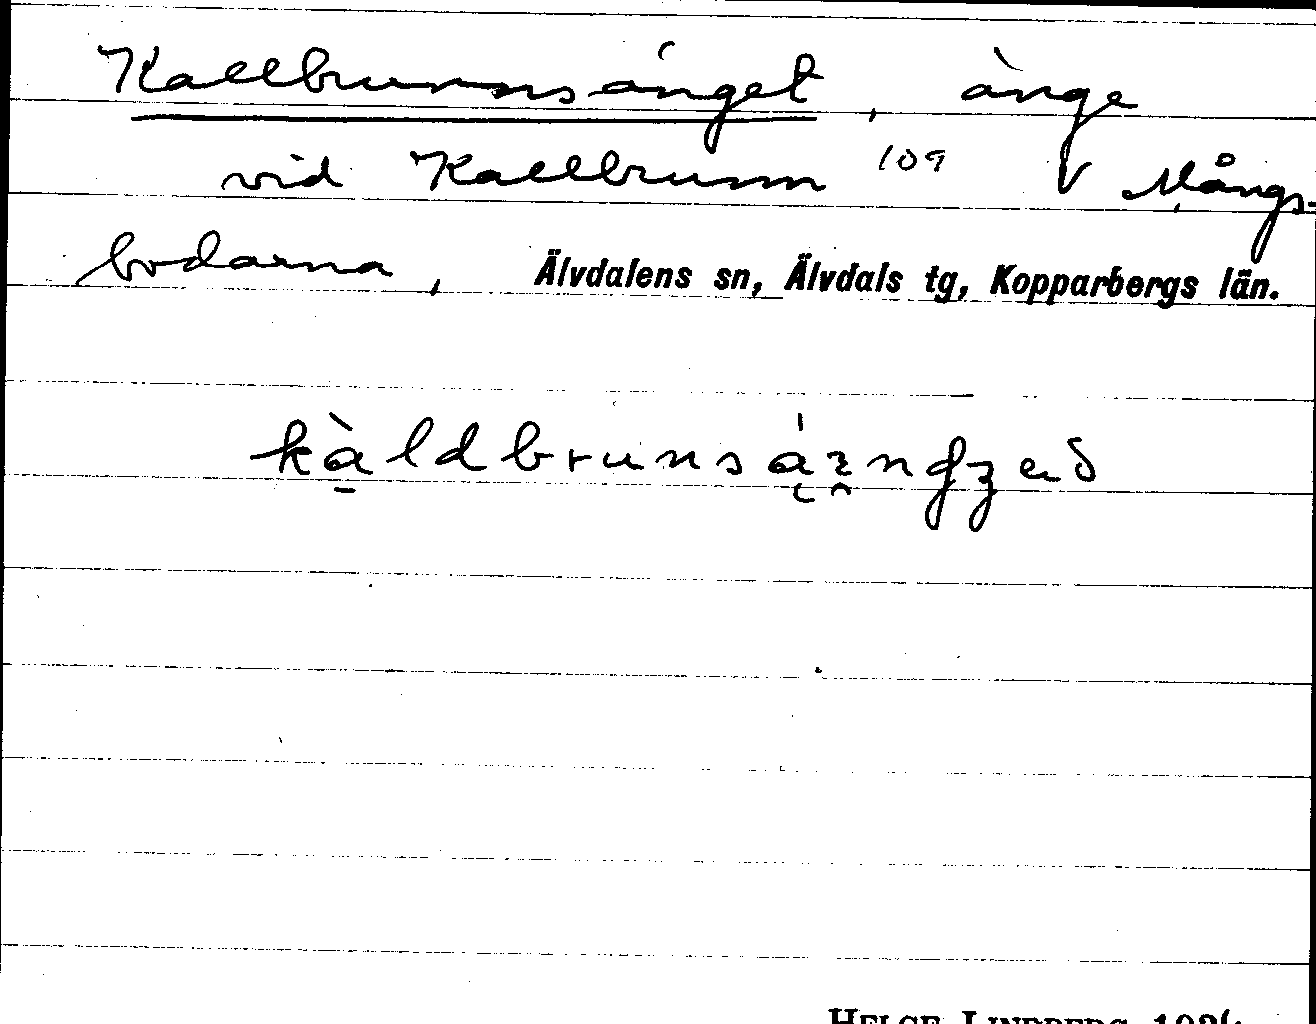 Kallbrunnsänget, änge
vid Kallbrunn 109 V Mångs-
bodarna, Älvdalens sn, Älvdals tg, Kopparbergs län.
HELGE LINDBERG